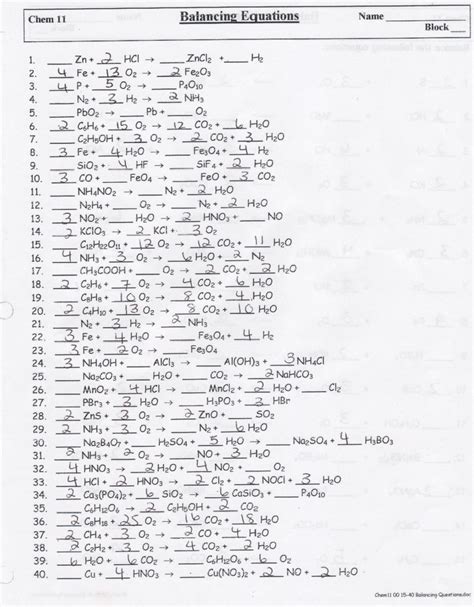 Chem 11 Balancing Equations Name ________
Block ___
1. ___ Zn + 2 HCl → ___ ZnCl2 + ___ H2
2. 4 Fe + 13 O2 → 2 Fe2O3
3. 4 P + 5 O2 → ___ P4O10
4. ___ N2 + 3 H2 → 2 NH3
5. ___ PbO2 → ___ Pb + ___ O2
6. 2 C6H6 + 15 O2 → 12 CO2 + 6 H2O
7. ___ C2H5OH + 3 O2 → 2 CO2 + 3 H2O
8. 3 Fe + 4 H2O → ___ Fe3O4 + 4 H2
9. ___ SiO2 + 4 HF → ___ SiF4 + 2 H2O
10. 3 CO + ___ FeO4 → ___ FeO + 3 CO2
11. ___ NH4NO2 → ___ N2 + 2 H2O
12. ___ N2H4 + ___ O2 → ___ N2 + 2 H2O
13. 3 NO2 + ___ H2O → 2 HNO3 + ___ NO
14. 2 KClO3 → 2 KCl + 3 O2
15. ___ C12H22O11 + 12 O2 → 12 CO2 + 11 H2O
16. 4 NH3 + 3 O2 → 6 H2O + 2 N2
17. ___ CH3COOH + ___ O2 → 2 CO2 + 2 H2O
18. 2 C2H6 + 7 O2 → 4 CO2 + 6 H2O
19. ___ C8H8 + 10 O2 → 8 CO2 + 4 H2O
20. 2 C4H10 + 13 O2 → 8 CO2 + 10 H2O
21. ___ N2 + 3 H2 → 2 NH3
22. 3 Fe + 4 H2O → ___ Fe3O4 + 4 H2
23. 3 Fe + 2 O2 → ___ Fe3O4
24. 3 NH4OH + ___ AlCl3 → ___ Al(OH)3 + 3 NH4Cl
25. ___ Na2CO3 + ___ H2O + ___ CO2 → 2 NaHCO3
26. ___ MnO2 + 4 HCl → ___ MnCl2 + 2 H2O + ___ Cl2
27. ___ PBr3 + 3 H2O → ___ H3PO3 + 3 HBr
28. 2 ZnS + 3 O2 → 2 ZnO + ___ SO2
29. 2 NH3 + 3 O2 → ___ N2 + 6 H2O
30. ___ Na2B4O7 + ___ H2SO4 + 5 H2O → ___ Na2SO4 + 4 H3BO3
31. NH3 + 2 O2 → H2O
32. 4 HNO3 → 2 H2O + 4 NO2 + ___ O2
33. 3 HCl + 2 HNO3 → 2 Cl2 + 2 NOCl + 3 H2O
34. 2 Ca3(PO4)2 + 6 SiO2 → 6 CaSiO3 + ___ P4O10
35. ___ C6H12O6 → 2 C2H5OH + 2 CO2
36. 2 C8H18 + 25 O2 → 16 CO2 + 18 H2O
37. 2 CH4 + 3 O2 → 2 CO + 4 H2O
38. 2 C2H2 + 3 O2 → 4 CO + 2 H2O
39. 6 H2O + 6 CO2 → ___ C6H12O6 + 6 O2
40. ___ Cu + 4 HNO3 → ___ Cu(NO3)2 + 2 NO2 + 2 H2O